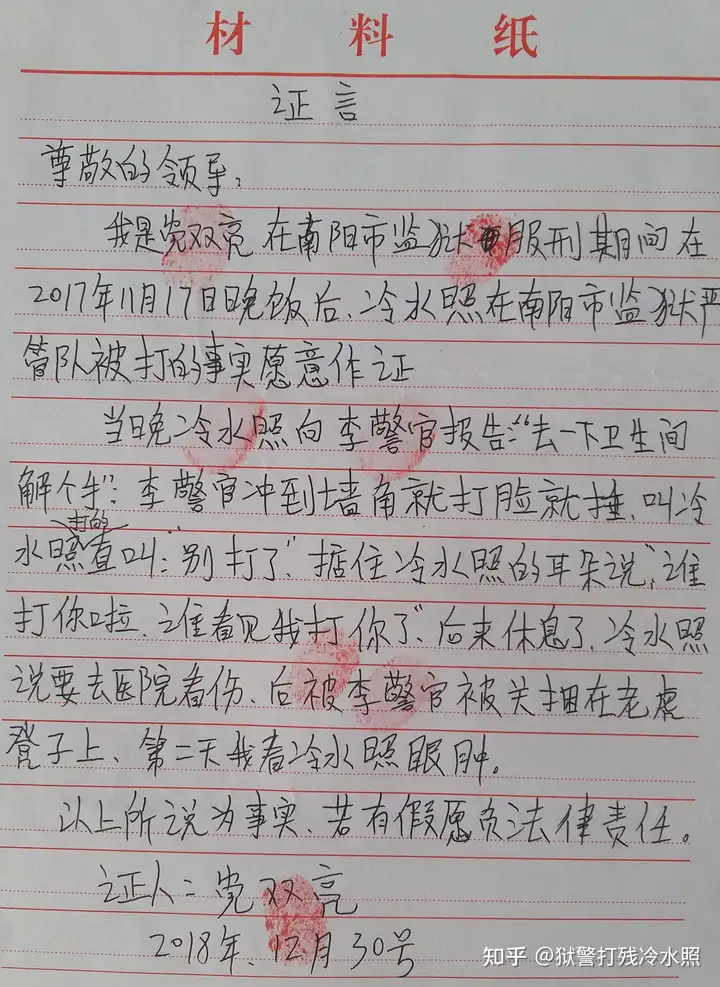 材料纸
证言
尊敬的领导:
我是党双亮在南阳市监狱服刑期间在
2017年11月17日晚饭后、冷水照在南阳市监狱严
管队被打的事实愿意作证
当晚冷水照向李警官报告:“去一下卫生间
解个手”: 李警官冲到墙角就打脸就捶、叫冷
打的
水照直叫:“别打了”掂住冷水照的耳朵说“谁
打你啦、谁看见我打你了”、后来休息了、冷水照
说要去医院看伤、后被李警官被关捆在老虎
凳子上、第二天我看冷水照眼肿。
以上所说为事实、若有假愿负法律责任。
证人:党双亮
2018年、12月30号
知乎 @狱警打残冷水照